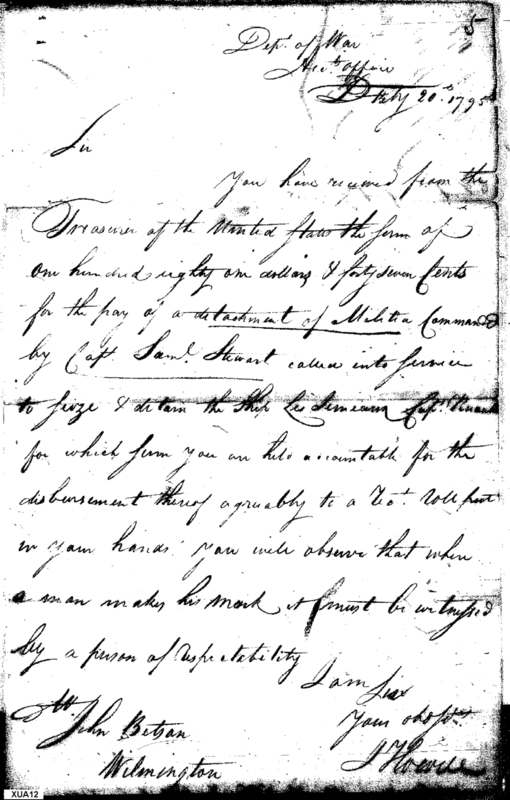 5
Dept. of War
Acct. office
20th 1795
Sir
You have received from the
Treasurer of the United States the sum of
one hundred eighty one dollars & forty seven Cents
for the pay of a detachment of Militia Commanded
by Capt. Saml. Stewart called into service
to seize & detain the Ship Les Capt.
for which sum you are held accountable for the
disbursement thereof agreeably to a roll put
in your hands. You will observe that when
a man makes his mark it must be witnessed
by a person of respectability
I am Sir
Your obdt.
J Howell
Mr.
John
Wilmington
XUA12